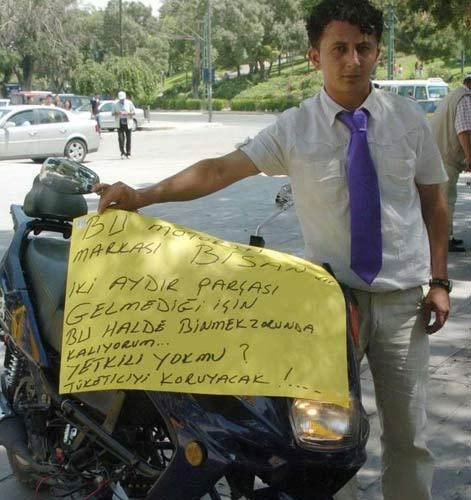 BU MOTORUN
MARKASI BISAN...
İKİ AYDIR PARÇASI
GELMEDİĞİ İÇİN
BU HALDE BİNMEK ZORUNDA
KALIYORUM...
YETKİLİ YOKMU ?
TÜKETİCİYİ KORUYACAK !....